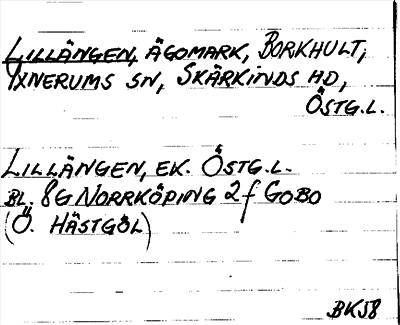 LILLÄNGEN, ÄGOMARK, BORKHULT,
YXNERUMS SN, SKÄRKINDS HD,
ÖSTG.L.
LILLÄNGEN, EK. ÖSTG.L.
BL. 8G NORRKÖPING 2f GOBO
(Ö. HÄSTGÖL)
BK58